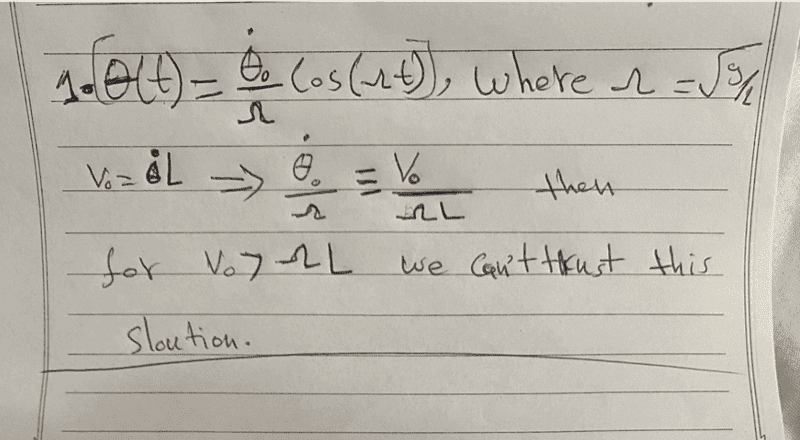 1. θ(t) = θ̇₀/Ω Cos(Ωt), where Ω = √g/L
V₀ = θ̇L ⇒ θ̇₀/Ω = V₀/ΩL then
for V₀ > ΩL we can't trust this
Sloution.